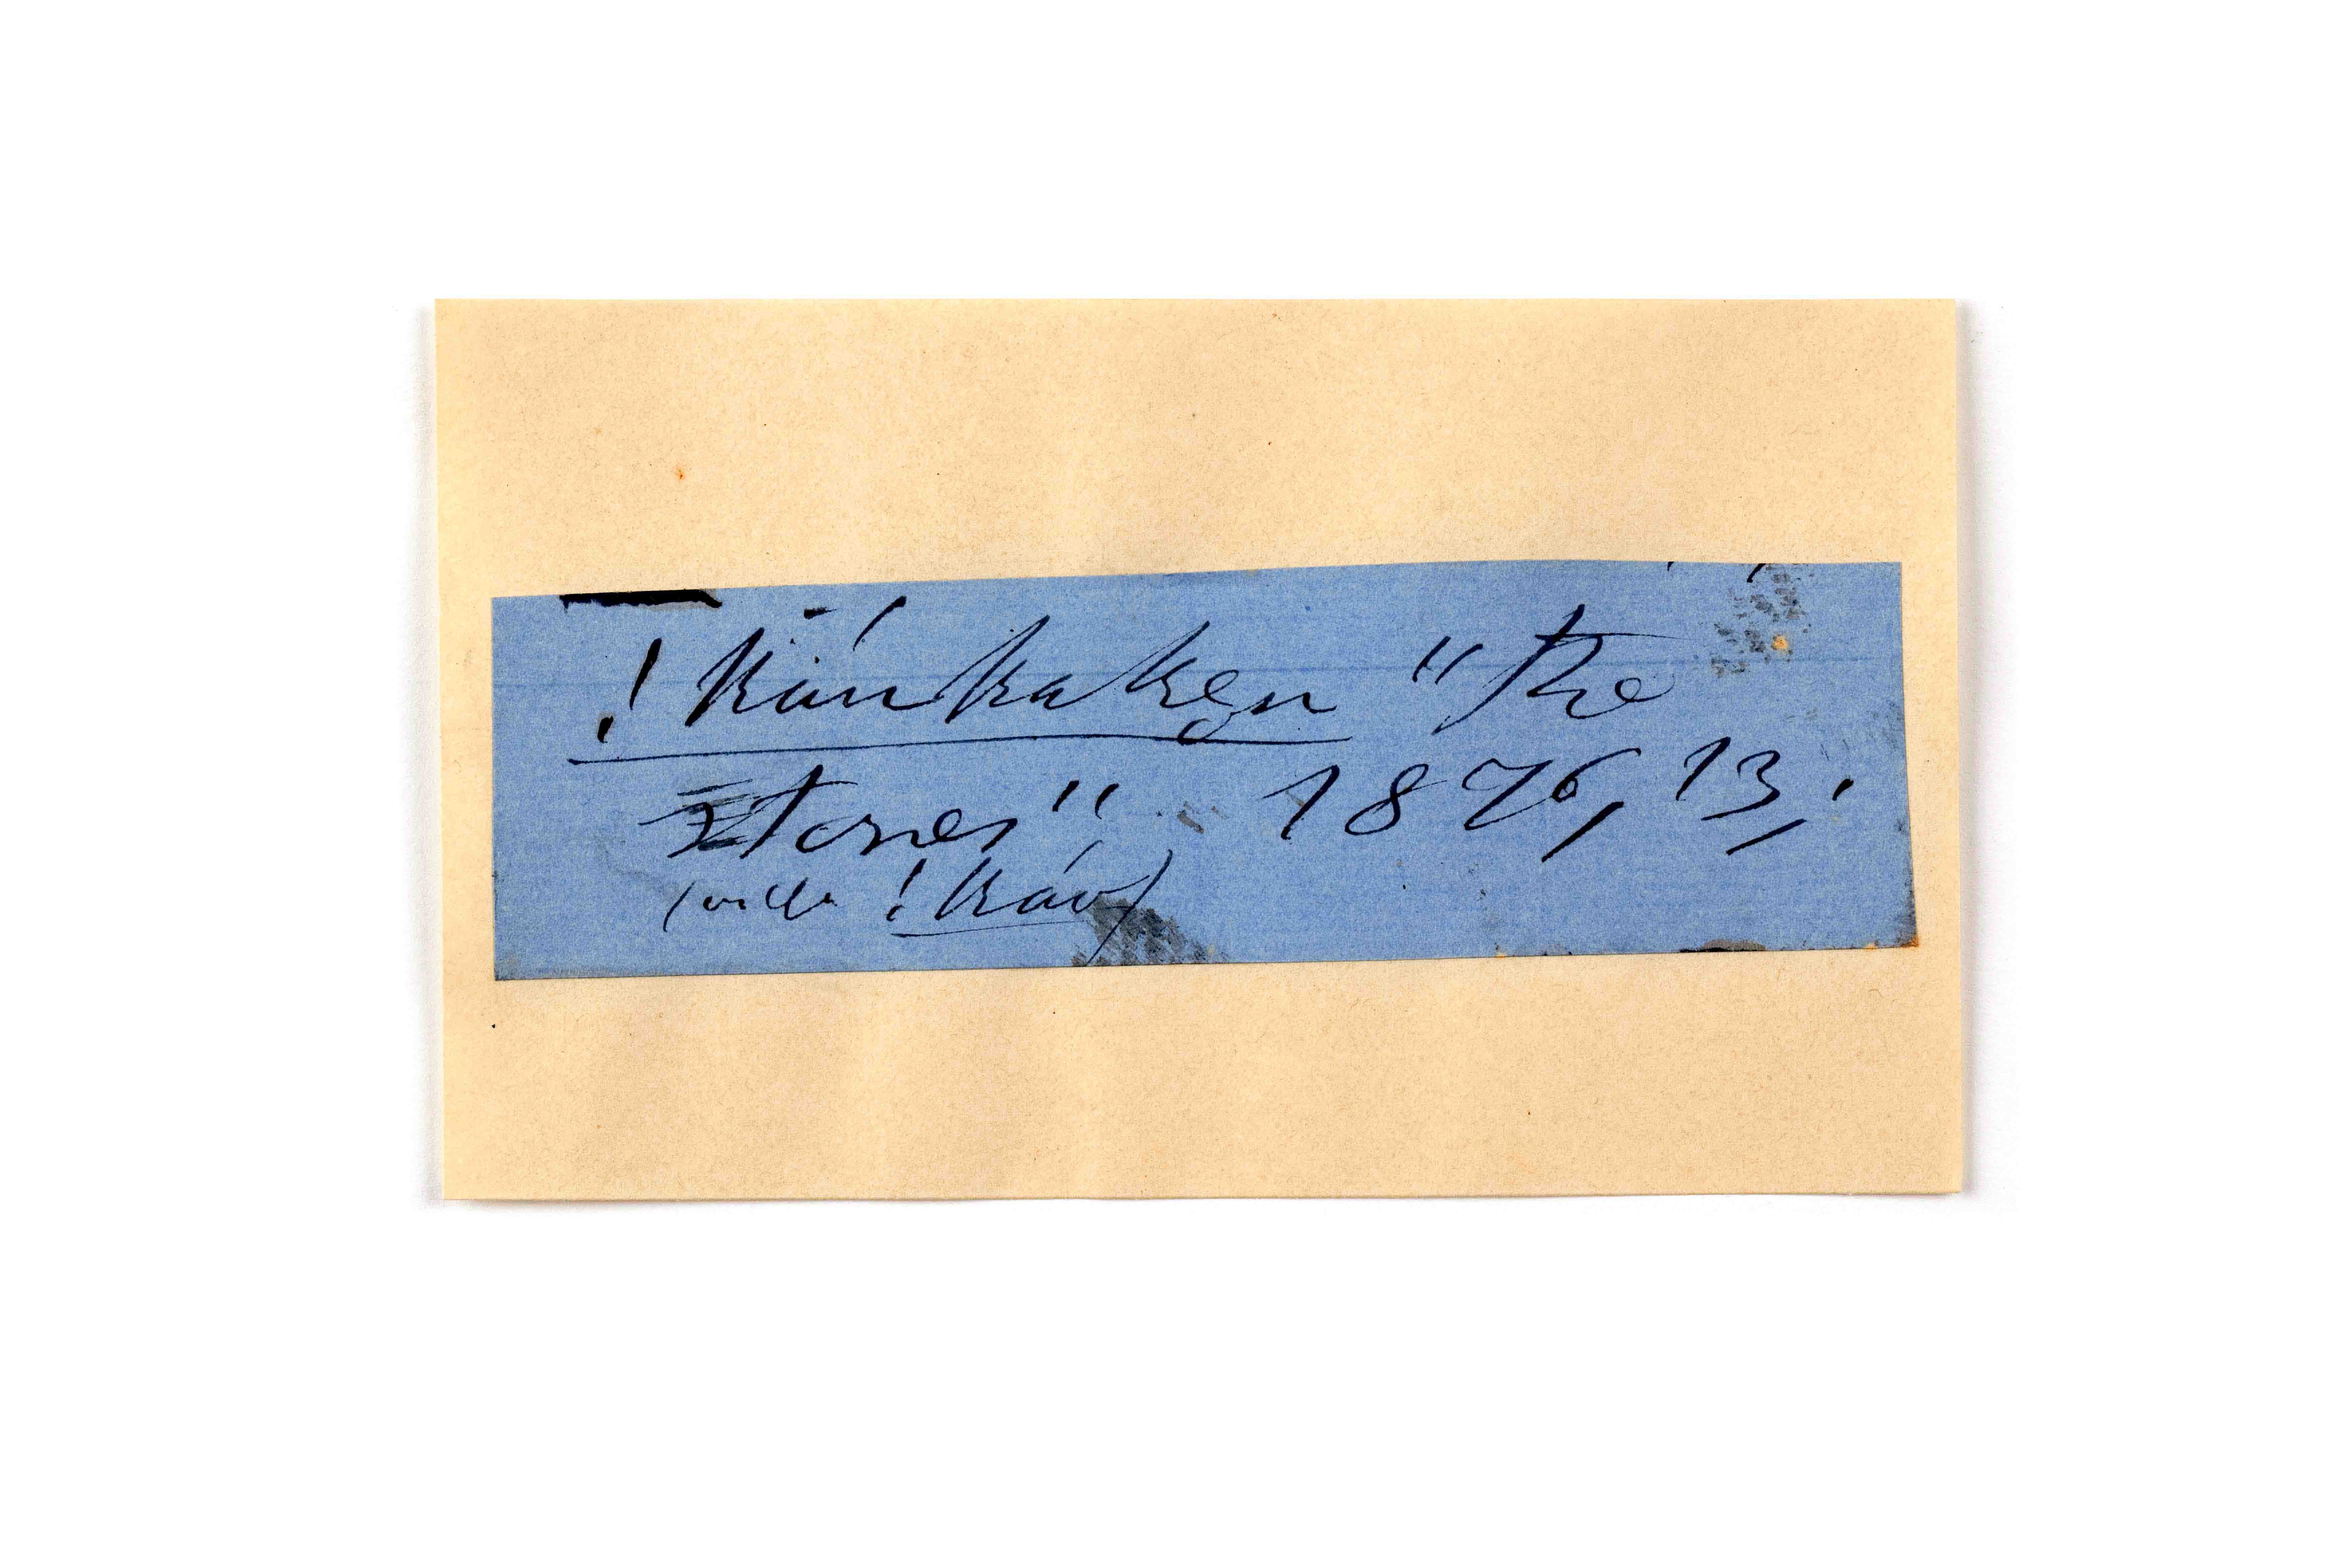 !káukaken "the
stones" 1876, 13,.
(vide !káu)